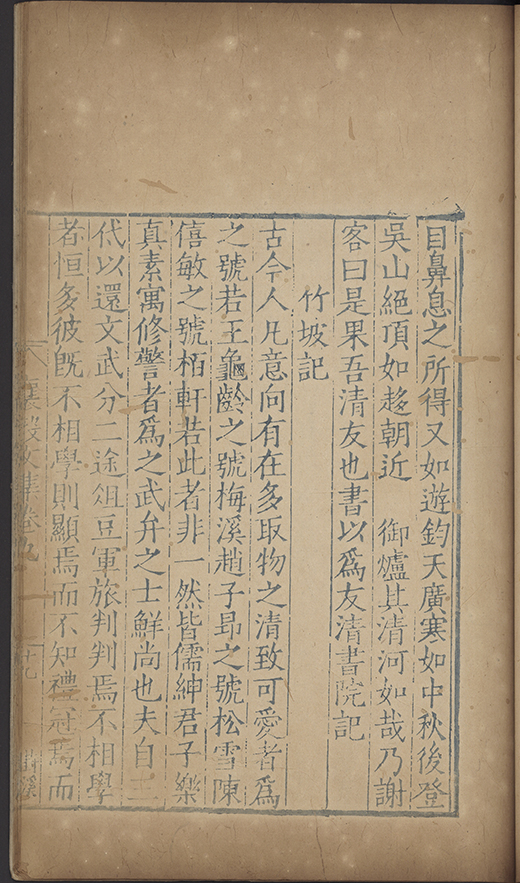 目鼻息之所得又如遊鈞天廣寒如中秋後登
吳山絕頂如趍朝近 御爐其清河如哉乃謝
客曰是果吾清友也書以爲友清書院記
竹坡記
古今人凡意向有在多取物之清致可愛者爲
之號若王龜齡之號梅溪趙子昂之號松雪陳
僖敏之號栢軒若此者非一然皆儒紳君子樂
真素寓修警者爲之武弁之士鮮尚也夫自三
代以還文武分二途俎豆軍旅判判焉不相學
者恒多彼旣不相學則顯焉而不知禮冠焉而
襄毅文集卷九 十九